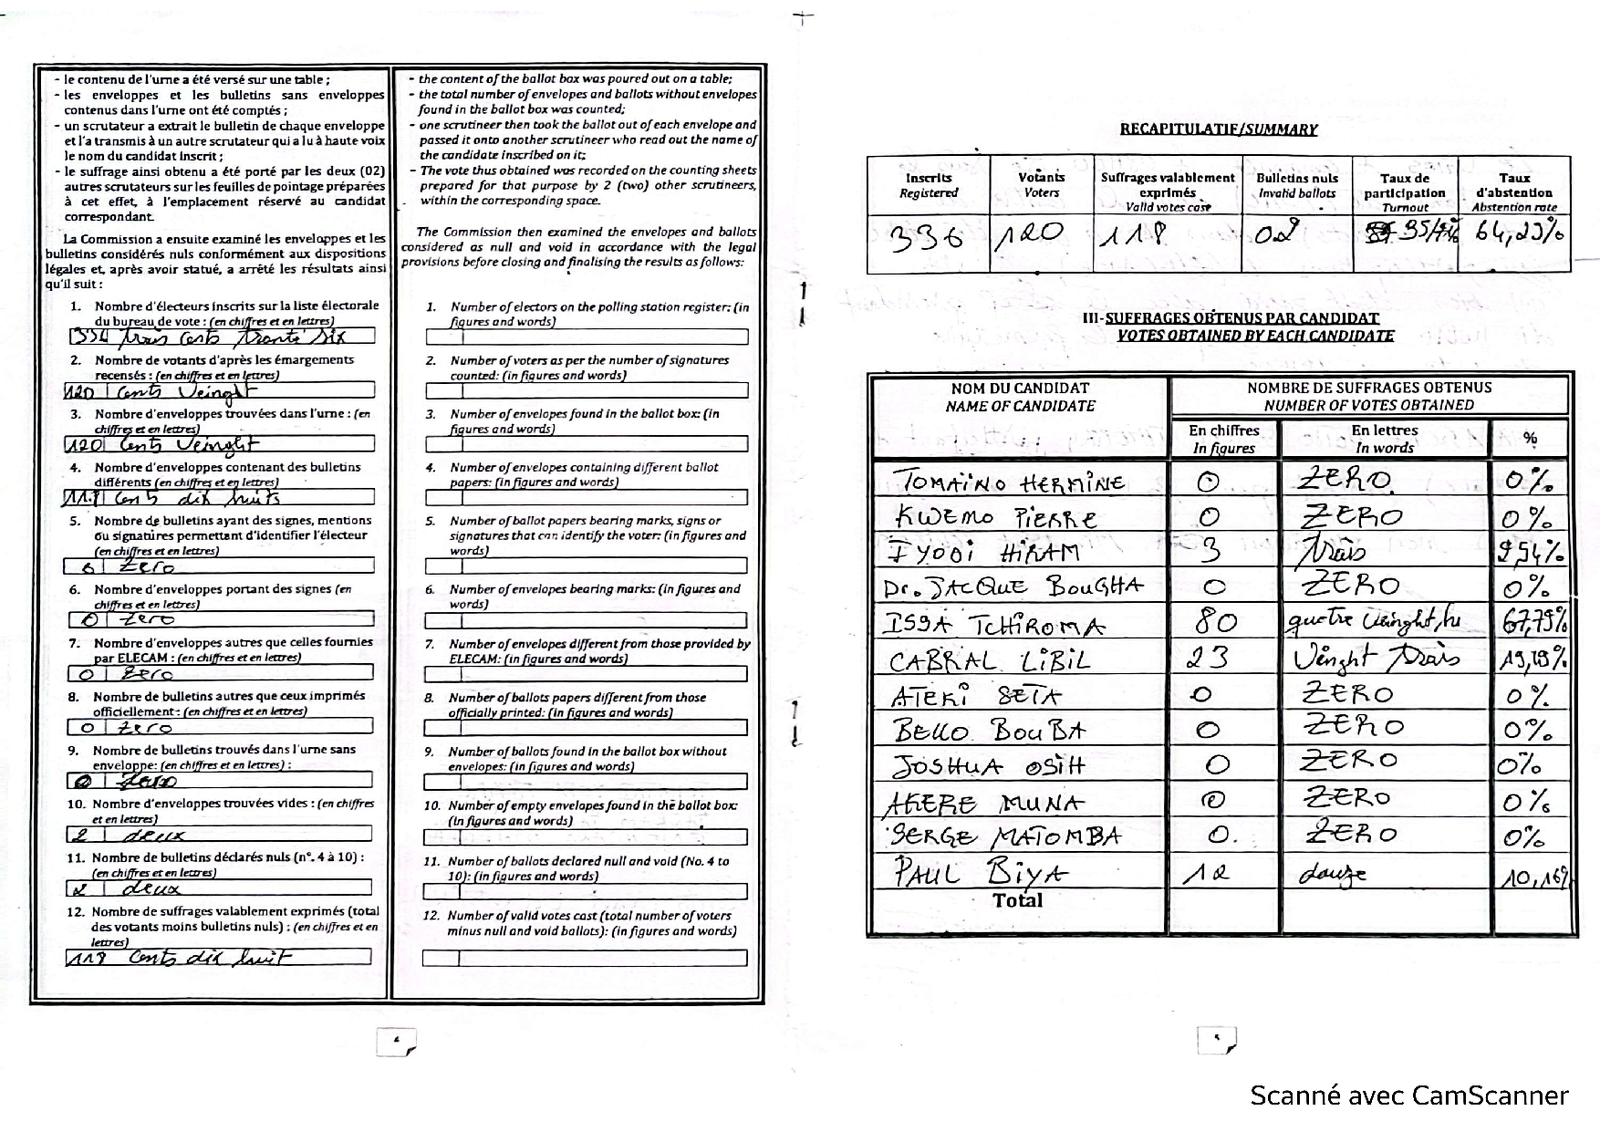 - le contenu de l'urne a été versé sur une table ;
- les enveloppes et les bulletins sans enveloppes
contenus dans l'urne ont été comptés ;
- un scrutateur a extrait le bulletin de chaque enveloppe
et l'a transmis à un autre scrutateur qui a lu à haute voix
le nom du candidat inscrit ;
- le suffrage ainsi obtenu a été porté par les deux (02)
autres scrutateurs sur les feuilles de pointage préparées
à cet effet, à l'emplacement réservé au candidat
correspondant.
La Commission a ensuite examiné les enveloppes et les
bulletins considérés nuls conformément aux dispositions
légales et, après avoir statué, a arrêté les résultats ainsi
qu'il suit :
1. Nombre d'électeurs inscrits sur la liste électorale
du bureau de vote : (en chiffres et en lettres)
336 trois cents trante six
2. Nombre de votants d'après les émargements
recensés : (en chiffres et en lettres)
120 cents Veinght
3. Nombre d'enveloppes trouvées dans l'urne : (en
chiffres et en lettres)
120 cents Veinght
4. Nombre d'enveloppes contenant des bulletins
différents (en chiffres et en lettres)
118 cents dix huits
5. Nombre de bulletins ayant des signes, mentions
ou signatures permettant d'identifier l'électeur
(en chiffres et en lettres)
0 zero
6. Nombre d'enveloppes portant des signes (en
chiffres et en lettres)
0 zero
7. Nombre d'enveloppes autres que celles fournies
par ELECAM : (en chiffres et en lettres)
0 zero
8. Nombre de bulletins autres que ceux imprimés
officiellement : (en chiffres et en lettres)
0 zero
9. Nombre de bulletins trouvés dans l'urne sans
enveloppe: (en chiffres et en lettres) :
0 zero
10. Nombre d'enveloppes trouvées vides : (en chiffres
et en lettres)
2 deux
11. Nombre de bulletins déclarés nuls (n°. 4 à 10) :
(en chiffres et en lettres)
2 deux
12. Nombre de suffrages valablement exprimés (total
des votants moins bulletins nuls) : (en chiffres et en
lettres)
118 cents dix huit
- the content of the ballot box was poured out on a table;
- the total number of envelopes and ballots without envelopes
found in the ballot box was counted;
- one scrutineer then took the ballot out of each envelope and
passed it onto another scrutineer who read out the name of
the candidate inscribed on it;
- The vote thus obtained was recorded on the counting sheets
prepared for that purpose by 2 (two) other scrutineers,
within the corresponding space.
The Commission then examined the envelopes and ballots
considered as null and void in accordance with the legal
provisions before closing and finalising the results as follows:
1. Number of electors on the polling station register: (in
figures and words)
2. Number of voters as per the number of signatures
counted: (in figures and words)
3. Number of envelopes found in the ballot box: (in
figures and words)
4. Number of envelopes containing different ballot
papers: (in figures and words)
5. Number of ballot papers bearing marks, signs or
signatures that can identify the voter: (in figures and
words)
6. Number of envelopes bearing marks: (in figures and
words)
7. Number of envelopes different from those provided by
ELECAM: (in figures and words)
8. Number of ballots papers different from those
officially printed: (in figures and words)
9. Number of ballots found in the ballot box without
envelopes: (in figures and words)
10. Number of empty envelopes found in the ballot box:
(in figures and words)
11. Number of ballots declared null and void (No. 4 to
10): (in figures and words)
12. Number of valid votes cast (total number of voters
minus null and void ballots): (in figures and words)
4
RECAPITULATIF/SUMMARY
Inscrits Votants Suffrages valablement Bulletins nuls Taux de Taux
Registered Voters exprimés Invalid ballots participation d'abstention
Valid votes cast Turnout Abstention rate
336 120 118 02 64,23%
III-SUFFRAGES OBTENUS PAR CANDIDAT
VOTES OBTAINED BY EACH CANDIDATE
NOM DU CANDIDAT NOMBRE DE SUFFRAGES OBTENUS
NAME OF CANDIDATE NUMBER OF VOTES OBTAINED
En chiffres En lettres %
In figures In words
TOMAÏNO HERMINE 0 ZERO 0%
KWEMO PIERRE 0 ZERO 0%
IYODI HIRAM 3 trois 2,54%
Dr. JACQUE BOUGHA 0 ZERO 0%
ISSA TCHIROMA 80 quatre Veinght 67,79%
CABRAL LIBIL 23 Veinght trois 19,49%
ATEKI SETA 0 ZERO 0%
BELLO BOUBA 0 ZERO 0%
JOSHUA OSIH 0 ZERO 0%
AKERE MUNA 0 ZERO 0%
SERGE MATOMBA 0. ZERO 0%
PAUL BIYA 12 douze 10,16%
Total
5
Scanné avec CamScanner